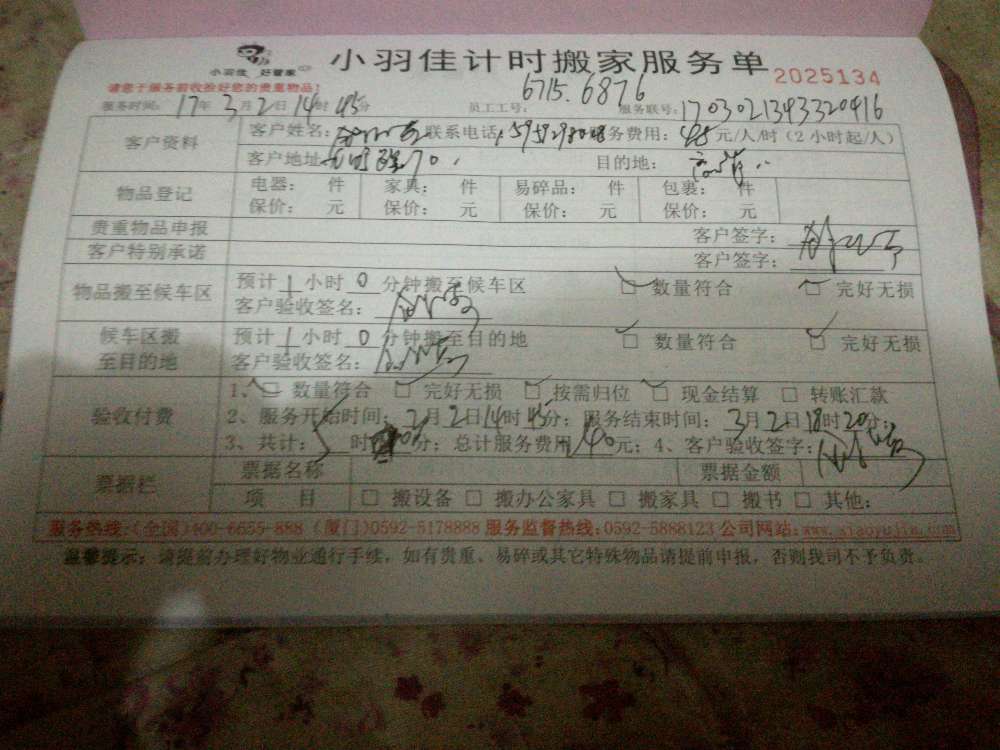 小羽佳 好管家
小羽佳计时搬家服务单 2025134
请您于服务前收捡好您的贵重物品!
服务时间: 17年3月2日14时45分 员工工号: 6715.6876 服务联号: 1703021343320416
客户资料 客户姓名: 联系电话: 服务费用: 元/人/时(2小时起/人)
客户地址 目的地:
物品登记 电器: 件 家具: 件 易碎品: 件 包裹: 件
保价: 元 保价: 元 保价: 元 保价: 元
贵重物品申报 客户签字:
客户特别承诺 客户签字:
物品搬至候车区 预计1小时0分钟搬至候车区 数量符合 完好无损
客户验收签名:
候车区搬至目的地 预计1小时0分钟搬至目的地 数量符合 完好无损
客户验收签名:
验收付费 1、数量符合 完好无损 按需归位 现金结算 转账汇款
2、服务开始时间: 月2日14时45分; 服务结束时间: 3月2日18时20分;
3、共计: 时 分; 总计服务费用 元; 4、客户验收签字:
票据栏 票据名称 票据金额
项 目 搬设备 搬办公家具 搬家具 搬书 其他:
服务热线:(全国)400-6655-888 (厦门)0592-5178888 服务监督热线:0592-5888123 公司网站:www.xiaoyujia.com
温馨提示: 请提前办理好物业通行手续,如有贵重、易碎或其它特殊物品请提前申报,否则我司不予负责。